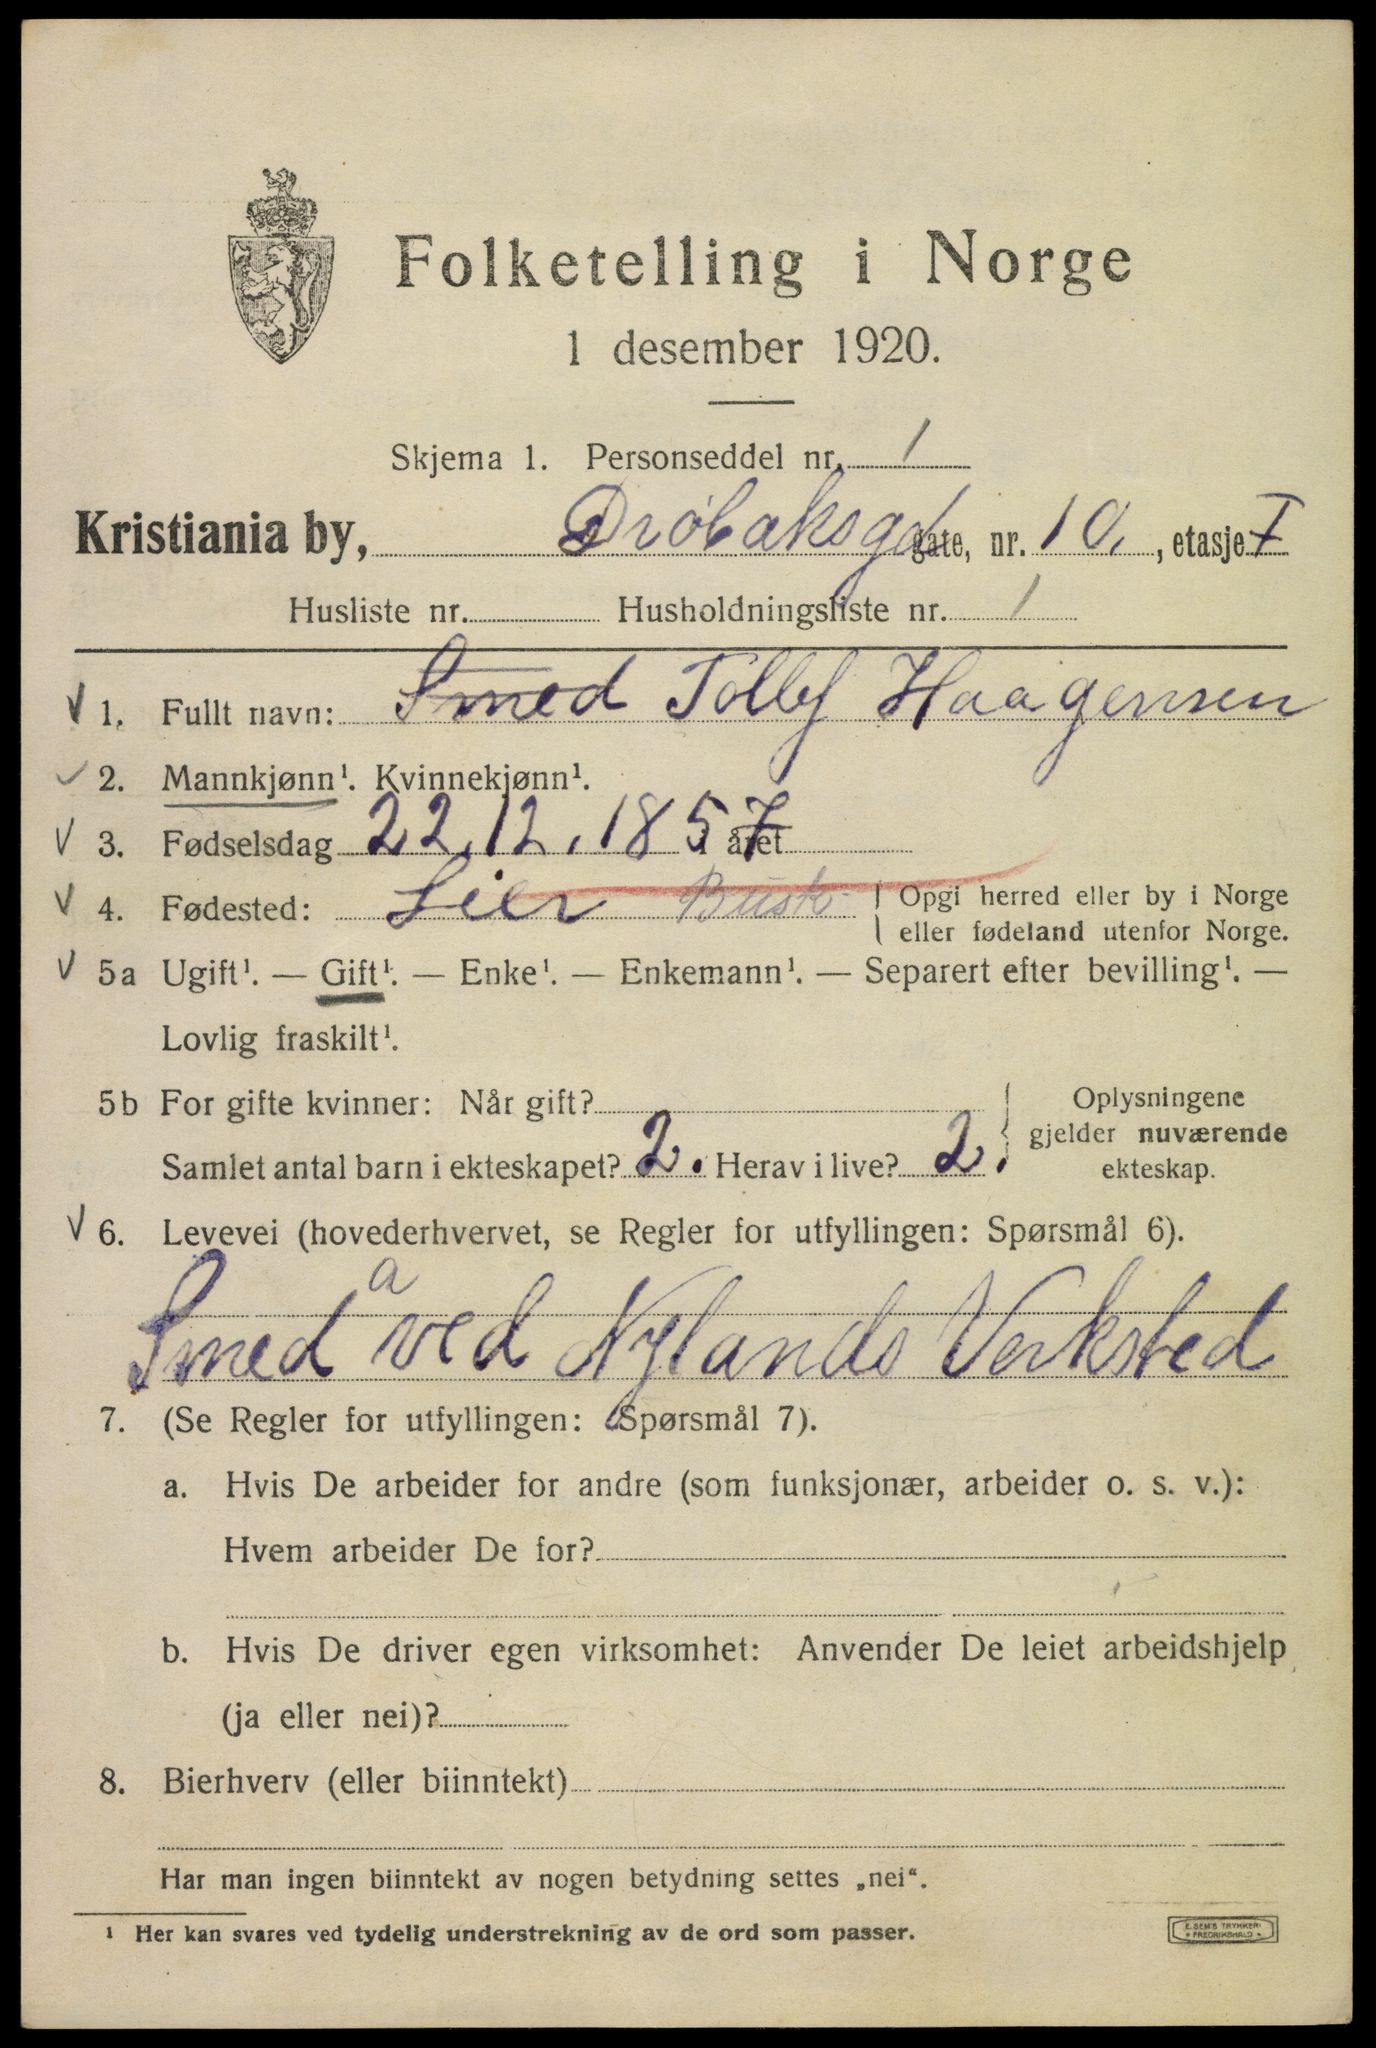 Folketelling i Norge
1 desember 1920.
Skjema 1. Personseddel nr. 1
Kristiania by, Drøbaksgd gate, nr. 10. , etasje I
Husliste nr. Husholdningsliste nr. 1
V 1. Fullt navn: Smed Tollef Haagensen
2. Mannkjønn¹. Kvinnekjønn¹.
V 3. Fødselsdag 22.12.1857 i året
V 4. Fødested: Lier Busk. Opgi herred eller by i Norge
eller fødeland utenfor Norge.
V 5a Ugift¹. — Gift¹. — Enke¹. — Enkemann¹. — Separert efter bevilling¹. —
Lovlig fraskilt¹.
5b For gifte kvinner: Når gift? Oplysningene
gjelder nuværende
Samlet antal barn i ekteskapet? 2. Herav i live? 2. ekteskap.
V 6. Levevei (hovederhvervet, se Regler for utfyllingen: Spørsmål 6).
a
Smed ved Nylands Verksted
7. (Se Regler for utfyllingen: Spørsmål 7).
a. Hvis De arbeider for andre (som funksjonær, arbeider o. s. v.):
Hvem arbeider De for?
b. Hvis De driver egen virksomhet: Anvender De leiet arbeidshjelp
(ja eller nei)?
8. Bierhverv (eller biinntekt)
Har man ingen biinntekt av nogen betydning settes „nei“.
¹ Her kan svares ved tydelig understrekning av de ord som passer.
E. SEM'S TRYKKERI
FREDRIKSHALD